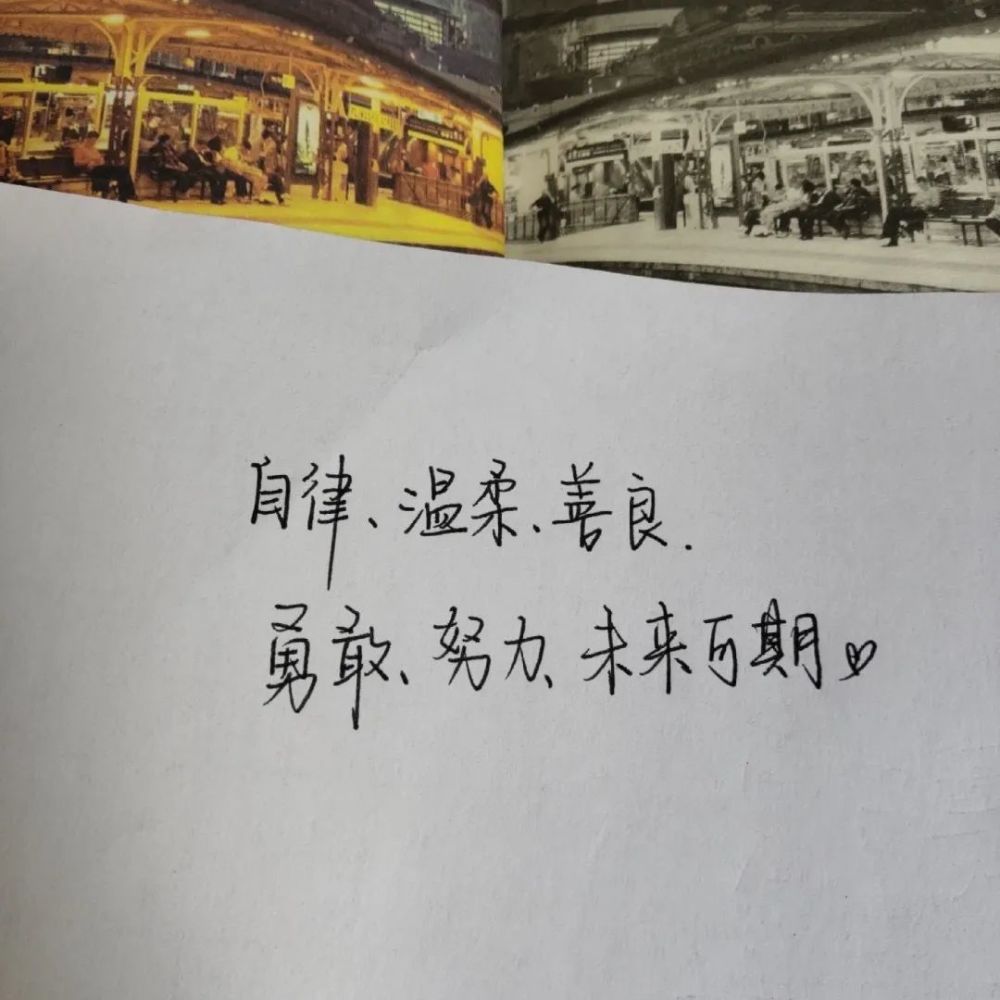 自律、温柔、善良.
勇敢、努力、未来可期♡